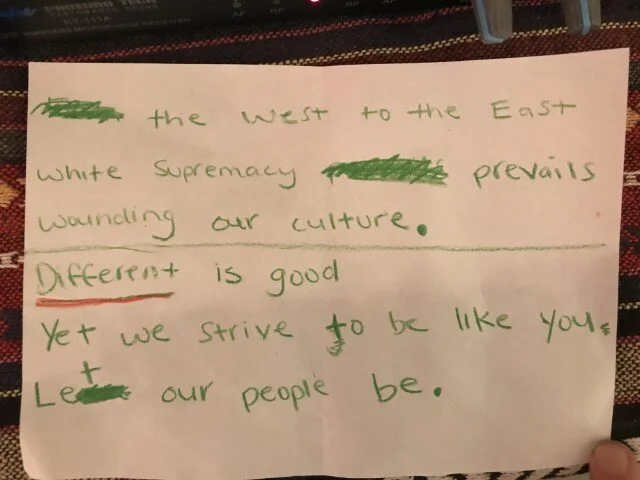 RT-111A
the west to the East
white supremacy prevails
wounding our culture.
Different is good
Yet we strive to be like you.
Let our people be.